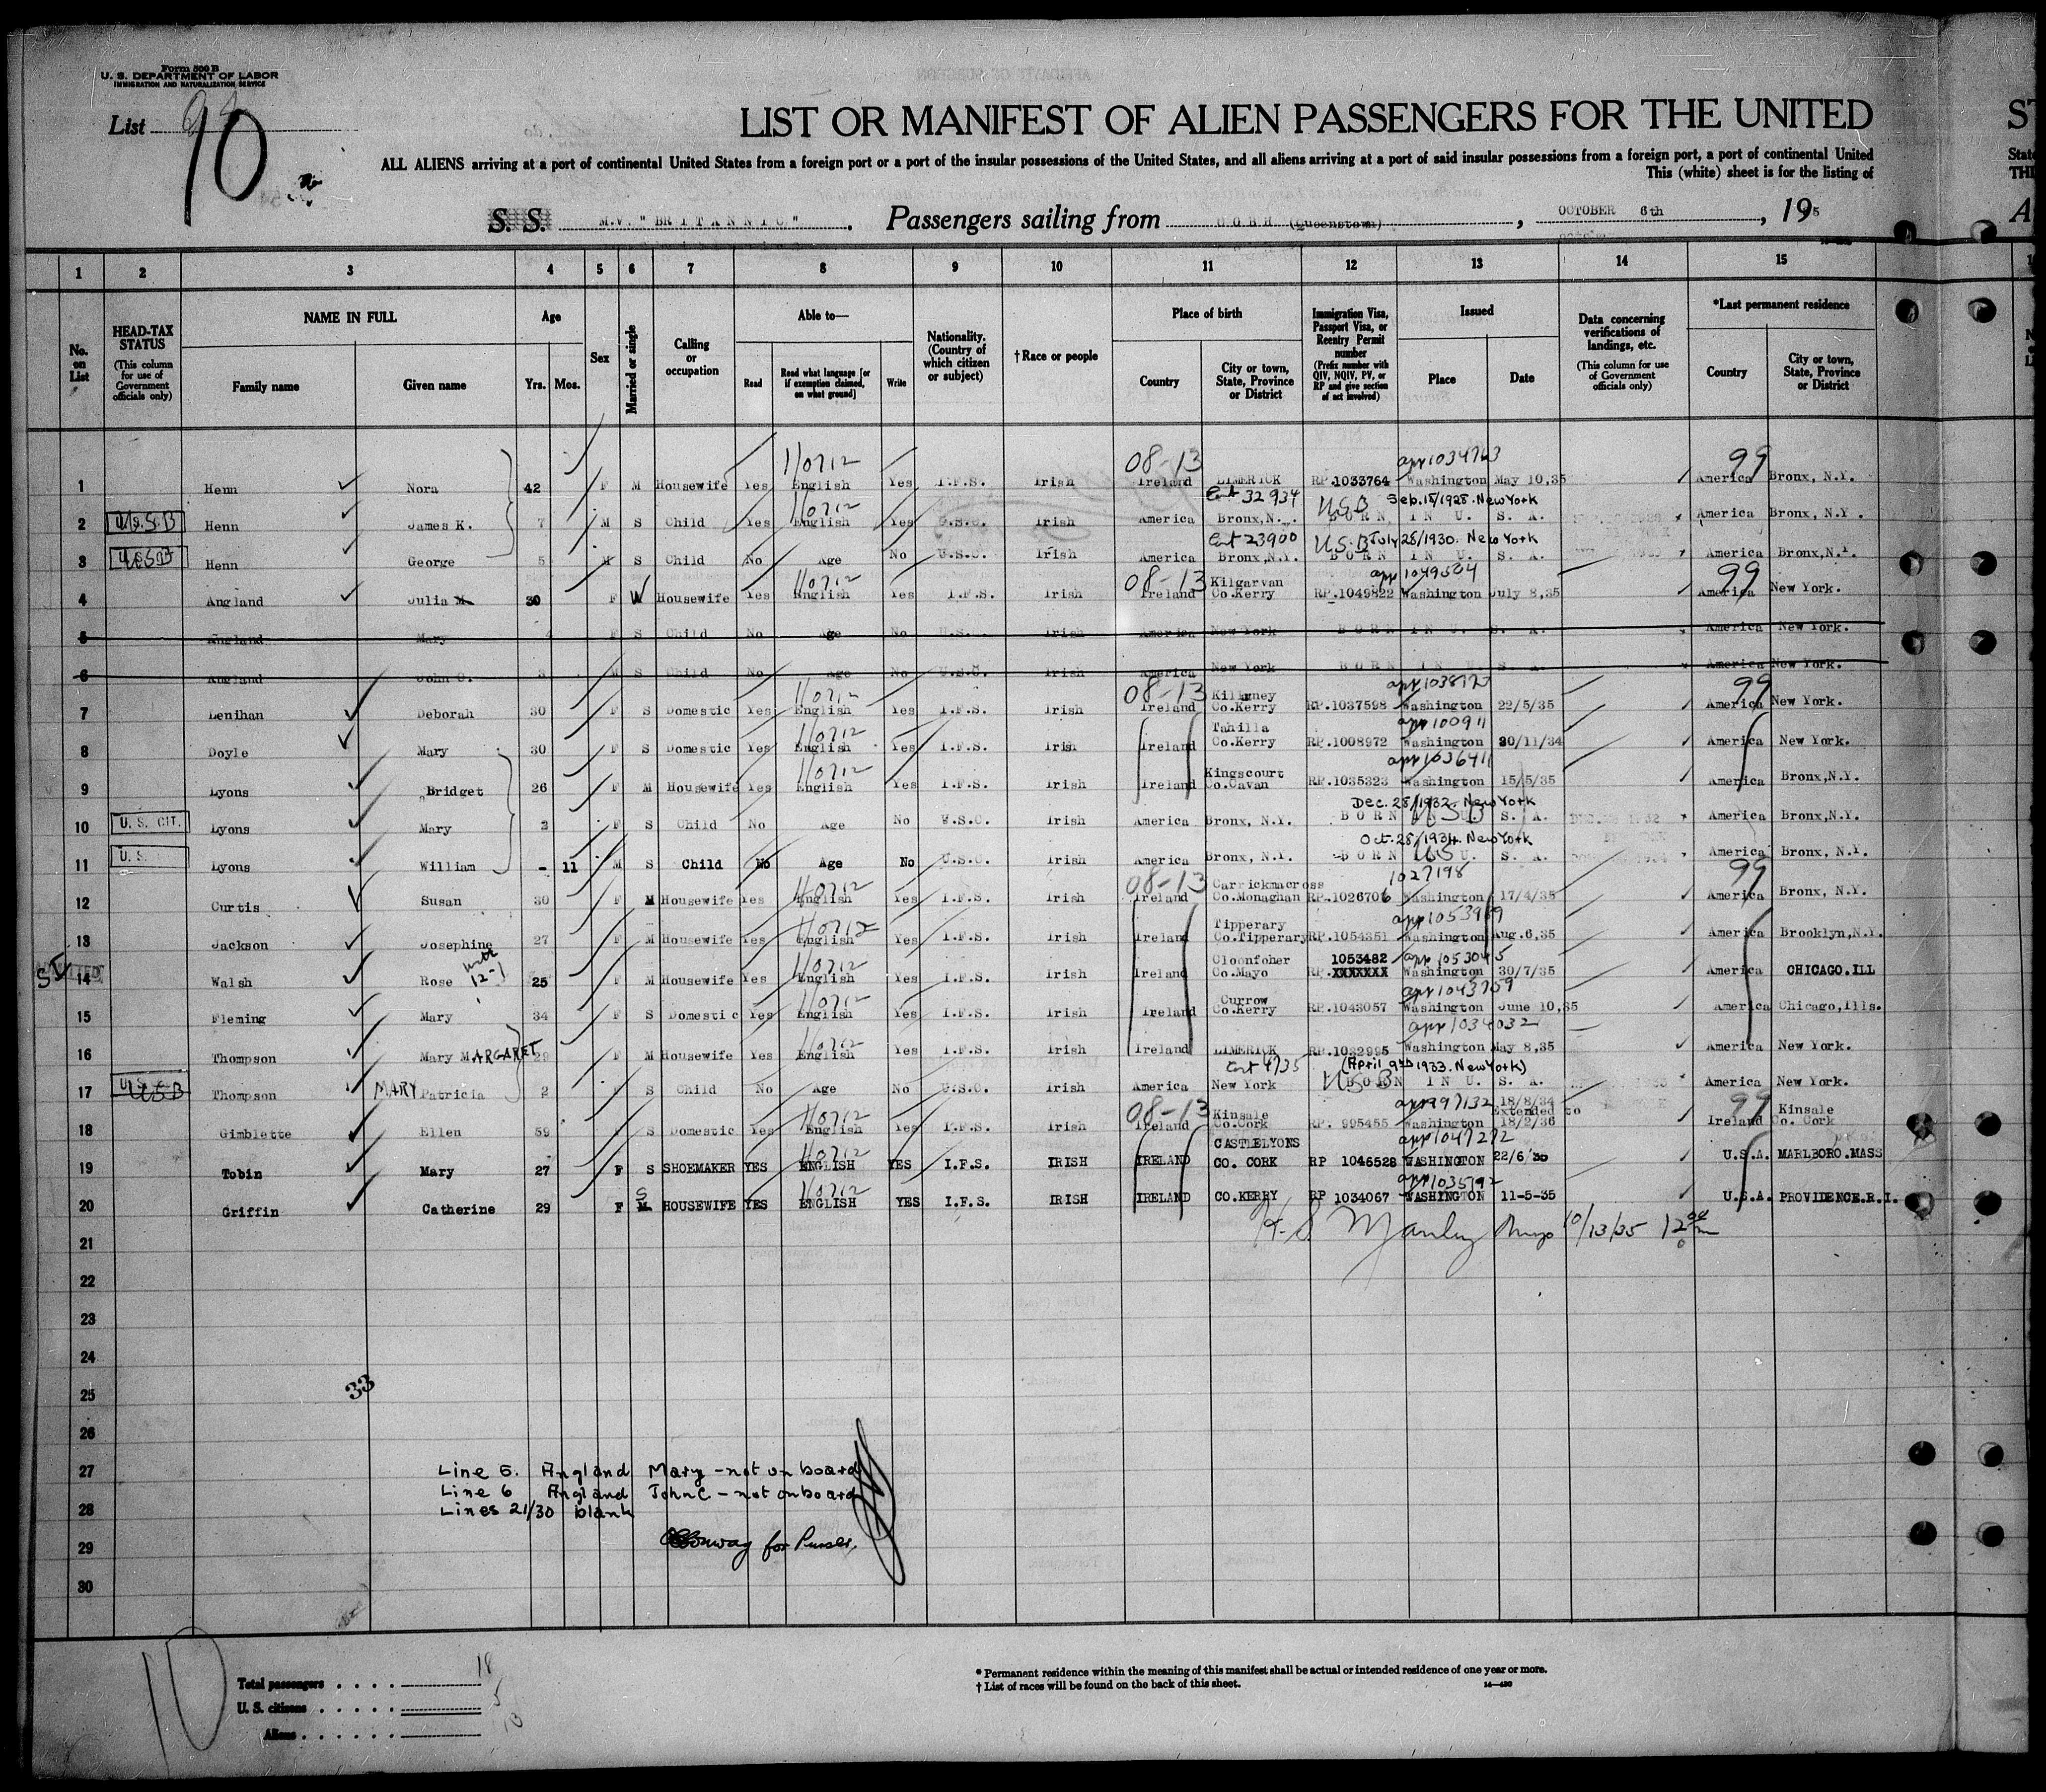 Form 500 B
U. S. DEPARTMENT OF LABOR
IMMIGRATION AND NATURALIZATION SERVICE
List 10
LIST OR MANIFEST OF ALIEN PASSENGERS FOR THE UNITED
ALL ALIENS arriving at a port of continental United States from a foreign port or a port of the insular possessions of the United States, and all aliens arriving at a port of said insular possessions from a foreign port, a port of continental United
This (white) sheet is for the listing of
S. S. M.V. "BRITANNIC". Passengers sailing from COBH (Queenstown), OCTOBER 6th, 19 5
1 2 3 4 5 6 7 8 9 10 11 12 13 14 15
No. on List
HEAD-TAX STATUS (This column for use of Government officials only)
NAME IN FULL Family name Given name
Age Yrs. Mos.
Sex
Married or single
Calling or occupation
Able to— Read Read what language [or if exemption claimed, on what ground] Write
Nationality. (Country of which citizen or subject)
† Race or people
Place of birth Country City or town, State, Province or District
Immigration Visa, Passport Visa, or Reentry Permit number (Prefix number with QIV, NQIV, PV, or RP and give section of act involved)
Issued Place Date
Data concerning verifications of landings, etc. (This column for use of Government officials only)
*Last permanent residence Country City or town, State, Province or District
110712 08-13 app 1034763 99
1 Henn Nora 42 F M Housewife Yes English Yes I.F.S. Irish Ireland LIMERICK RP.1033764 Washington May 10,35 America Bronx, N.Y.
110712 Cert 32934 USB Sep.15/1928. New York
2 U.S.B Henn James K. 7 M S Child Yes English Yes U.S.C. Irish America Bronx,N.. BORN IN U. S. A. America Bronx, N.Y.
Cert 23900 U.S.B July 28/1930. New York
3 USB Henn George 5 M S Child No Age No U.S.C. Irish America Bronx,N.Y. BORN IN U. S. A. America Bronx,N.Y.
110712 08-13 Kilgarvan app 1049504 99
4 Angland Julia M. 30 F W Housewife Yes English Yes I.F.S. Irish Ireland Co.Kerry RP.1049822 Washington July 8,35 America New York.
5 Angland Mary F S Child No Age No U.S. Irish America New York BORN IN U. S. A. America New York.
6 Angland John C. 3 M S Child No Age No U.S.C. Irish America New York BORN IN U. S. A. America New York.
110712 08-13 app 1038923 99
7 Lenihan Deborah 30 F S Domestic Yes English Yes I.F.S. Irish Ireland Co.Kerry RP.1037598 Washington 22/5/35 America New York.
110712 Tahilla app 100911
8 Doyle Mary 30 F S Domestic Yes English Yes I.F.S. Irish Ireland Co.Kerry RP.1008972 Washington 30/11/34 America New York.
110712 Kingscourt app 1036411
9 Lyons Bridget 26 F M Housewife Yes English Yes I.F.S. Irish Ireland Co.Cavan RP.1035323 Washington 15/5/35 America Bronx,N.Y.
Dec. 28/1932. New York
10 U. S. CIT. Lyons Mary 2 F S Child No Age No U.S.C. Irish America Bronx, N.Y. BORN IN U. S. A. America Bronx,N.Y.
Oct. 28/1934. New York
11 U. S. Lyons William - 11 M S Child No Age No U.S.C. Irish America Bronx, N.Y. BORN U. S. A. America Bronx, N.Y.
110712 08-13 Carrickmacross 1027198 99
12 Curtis Susan 30 F M Housewife Yes English Yes I.F.S. Irish Ireland Co.Monaghan RP.1026706 Washington 17/4/35 America Bronx, N.Y.
110712 Tipperary app 1053969
13 Jackson Josephine 27 F M Housewife Yes English Yes I.F.S. Irish Ireland Co.Tipperary RP.1054351 Washington Aug.6,35 America Brooklyn,N.Y.
with 12-1 110712 Cloonfoher 1053482 app 1053045
SI 14 Walsh Rose 25 F M Housewife Yes English Yes I.F.S. Irish Ireland Co.Mayo RP.XXXXXXX Washington 30/7/35 America CHICAGO.ILL
110712 Currow app 1043759
15 Fleming Mary 34 F S Domestic Yes English Yes I.F.S. Irish Ireland Co.Kerry RP.1043057 Washington June 10,35 America Chicago,Ills.
110712 app 1034032
16 Thompson Mary MARGARET 29 F M Housewife Yes English Yes I.F.S. Irish Ireland LIMERICK RP.1032995 Washington May 8,35 America New York.
Cert 4735 (April 9th 1933. New York)
17 USB Thompson MARY Patricia 2 F S Child No Age No U.S.C. Irish America New York BORN IN U. S. A. America New York.
110712 08-13 Kinsale app 997132 18/8/34 Extended to 99 Kinsale
18 Gimblette Ellen 59 F S Domestic Yes English Yes I.F.S. Irish Ireland Co.Cork RP. 995455 Washington 18/2/36 Ireland Co. Cork
110712 CASTLELYONS app 1047272
19 Tobin Mary 27 F S SHOEMAKER YES ENGLISH YES I.F.S. IRISH IRELAND CO. CORK RP 1046528 WASHINGTON 22/6 U.S.A. MARLBORO.MASS
110712 S app 1035792
20 Griffin Catherine 29 F M HOUSEWIFE YES ENGLISH YES I.F.S. IRISH IRELAND CO.KERRY RP 1034067 WASHINGTON 11-5-35 U.S.A. PROVIDENCE.R.I.
H. S. Manley 10/13/35
21
22
23
24
25
33
26
27 Line 5. Angland Mary - not on board
Line 6 Angland John C - not on board
28 Lines 21/30 blank
29 Conway for Purser.
30
10
Total passengers 18
U. S. citizens 5
Aliens 13
* Permanent residence within the meaning of this manifest shall be actual or intended residence of one year or more.
† List of races will be found on the back of this sheet.
14—490